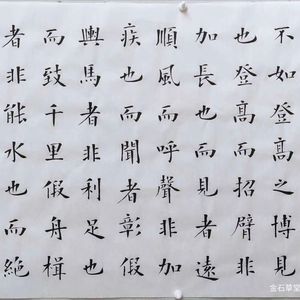 不如登髙之博見
也登髙而招臂非
加長也而見者遠
順風而呼聲非加
疾也而聞者彰假
輿馬者非利足也
而致千里假舟楫
者非能水也而絕
金石草堂